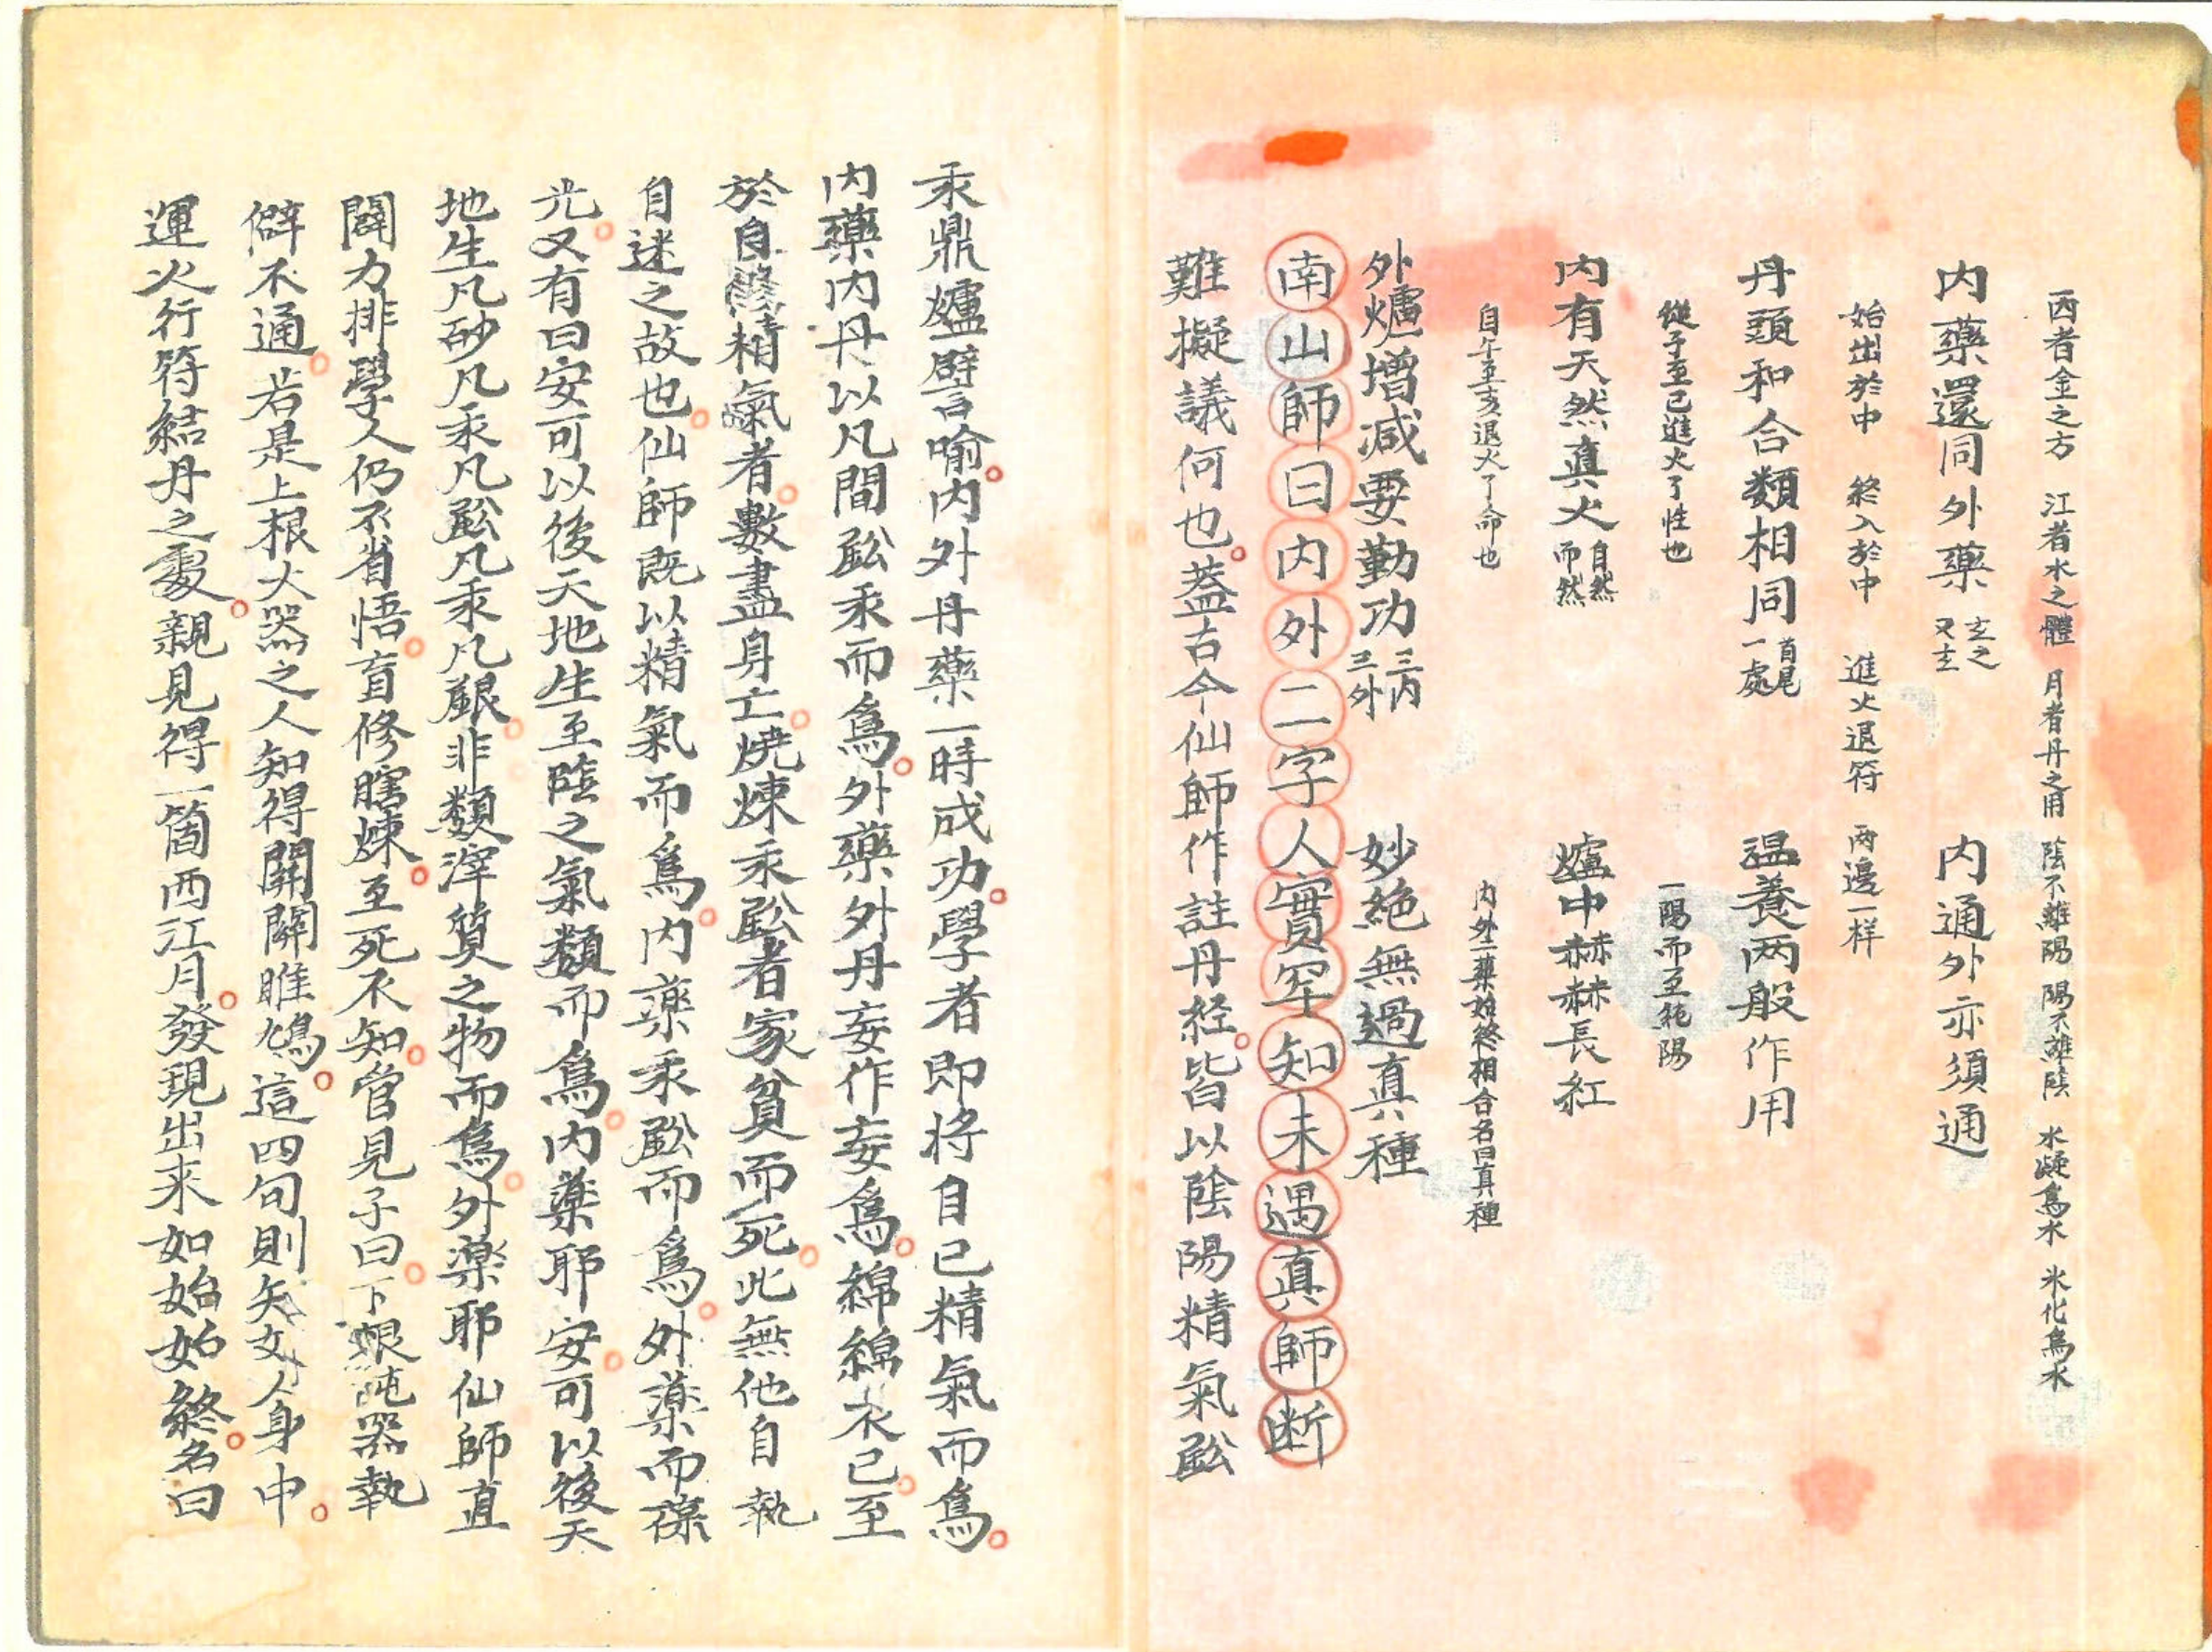 西者金之方 江者水之體 月者丹之用 陰不離陽 陽不離陰 水凝為氷 氷化為水
内藥還同外藥 玄之又玄 内通外亦須通
始出於中 終入於中 進火退符 兩邊一样
丹頭和合類相同 首尾一處 温養两般作用
從子至巳進火了性也 一陽而至純陽
内有天然真火 自然而然 爐中赫赫長紅
自午至亥退火了命也 内外二藥始終相合名曰真種
外爐增减要勤功 三内三外 妙絶無過真種
南山師曰内外二字人實罕知未遇真師断
難擬議何也蓋古今仙師作註丹経皆以陰陽精氣鈆
汞鼎爐譬喻内外丹藥一時成功學者即将自己精氣而為
内藥内丹以凡間鈆汞而為外藥外丹妄作妄為綿綿不已至
於自精氣者數盡身亡燒煉汞鈆者家貧而死此無他自執
自迷之故也仙師既以精氣而為内藥汞鈆而為外藥而葆
光又有曰安可以後天地生至陰之氣類而為内藥耶安可以後天
地生凡砂凡汞凡鈆凡汞凡銀非類滓質之物而為外藥耶仙師直
闢力排學人仍不省悟盲修瞎煉至死不知管見子曰下根鈍器執
僻不通若是上根大器之人知得開關雎鳩這四句則矢女人身中
運火行符結丹之處親見得一箇西江月發現出来如始如終名曰